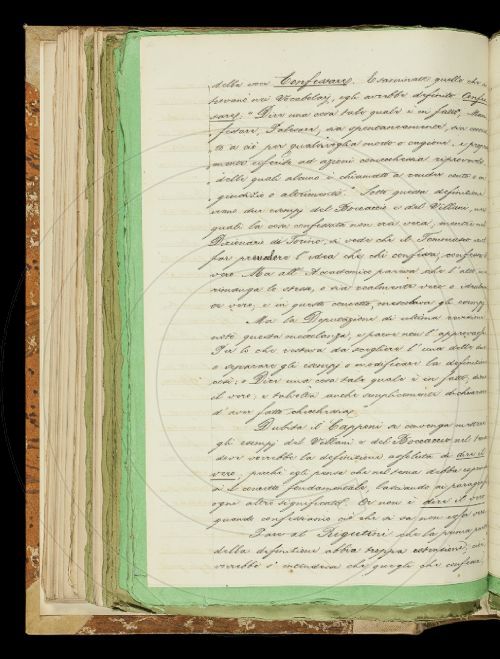 della voce Confessare. Esaminato quello che
trovano nei Vocabolarj, egli avrebbe definito Confes
sare: "Dire una cosa tale quale è in fatto, Mani
festare, Palesare, sia spontaneamente, sia
to a ciò per qualsivoglia modo o cagione, e
mente riferito ad azioni comecchessia riprovevoli
delle quali alcuno è chiamato a render conto o in
giudizio o altrimenti." Sotto questa definizione
erano due esempj del Boccaccio e del Villani, nei
quali la cosa confessata non era vera, mentre nel
Dizionario di Torino, si vede che il Tommaseo
far prendere l'idea che chi confessa, confessi
vero. Ma all'Accademico pareva che l'atto
rimanga lo stesso, o sia realmente vero o
to vero, e in questo concetto, mescolava gli esempj.
Ma la Deputazione di ultima revisione
notò questa mescolanza, e parve non l'approvasse.
Per lo che restava da scegliere l'una delle due
o separare gli esempj o modificare la definizione
così: "Dire una cosa tale quale è in fatto, dire
il vero; e talvolta anche semplicemente dichiarare
d'aver fatto checchessia.
Dubita il Capponi se convenga mettere
gli esempj del Villani e del Boccaccio nel tema
dove sarebbe la definizione assoluta di dire il
vero, perchè egli pensa che nel tema debba
si il concetto fondamentale, lasciando ai paragrafi
ogni altro significato. Or non è dire il vero
quando confessiamo ciò che si sa non esser vero.
Pare al Rigutini che la prima parte
della definizione abbia troppa estensione, che
verrebbe s'intendesse che quegli che confessa